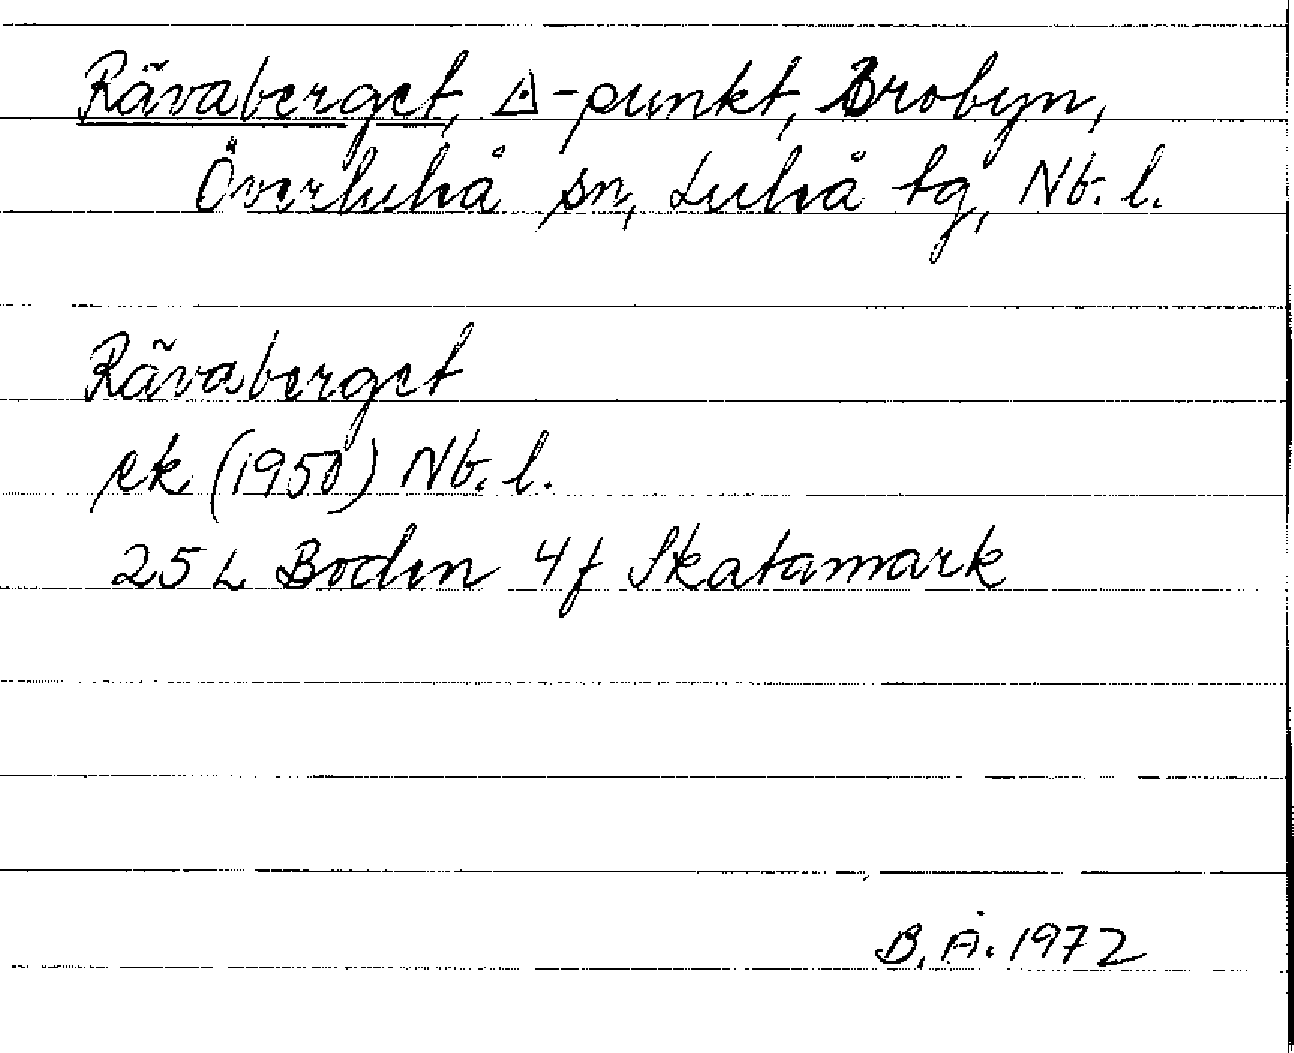 Rävaberget, ◬-punkt, Brobyn,
Överluleå sn, Luleå tg, Nb. l.
Rävaberget
ek (1950) Nb. l.
25 L Boden 4f Skatamark
B. Å. 1972